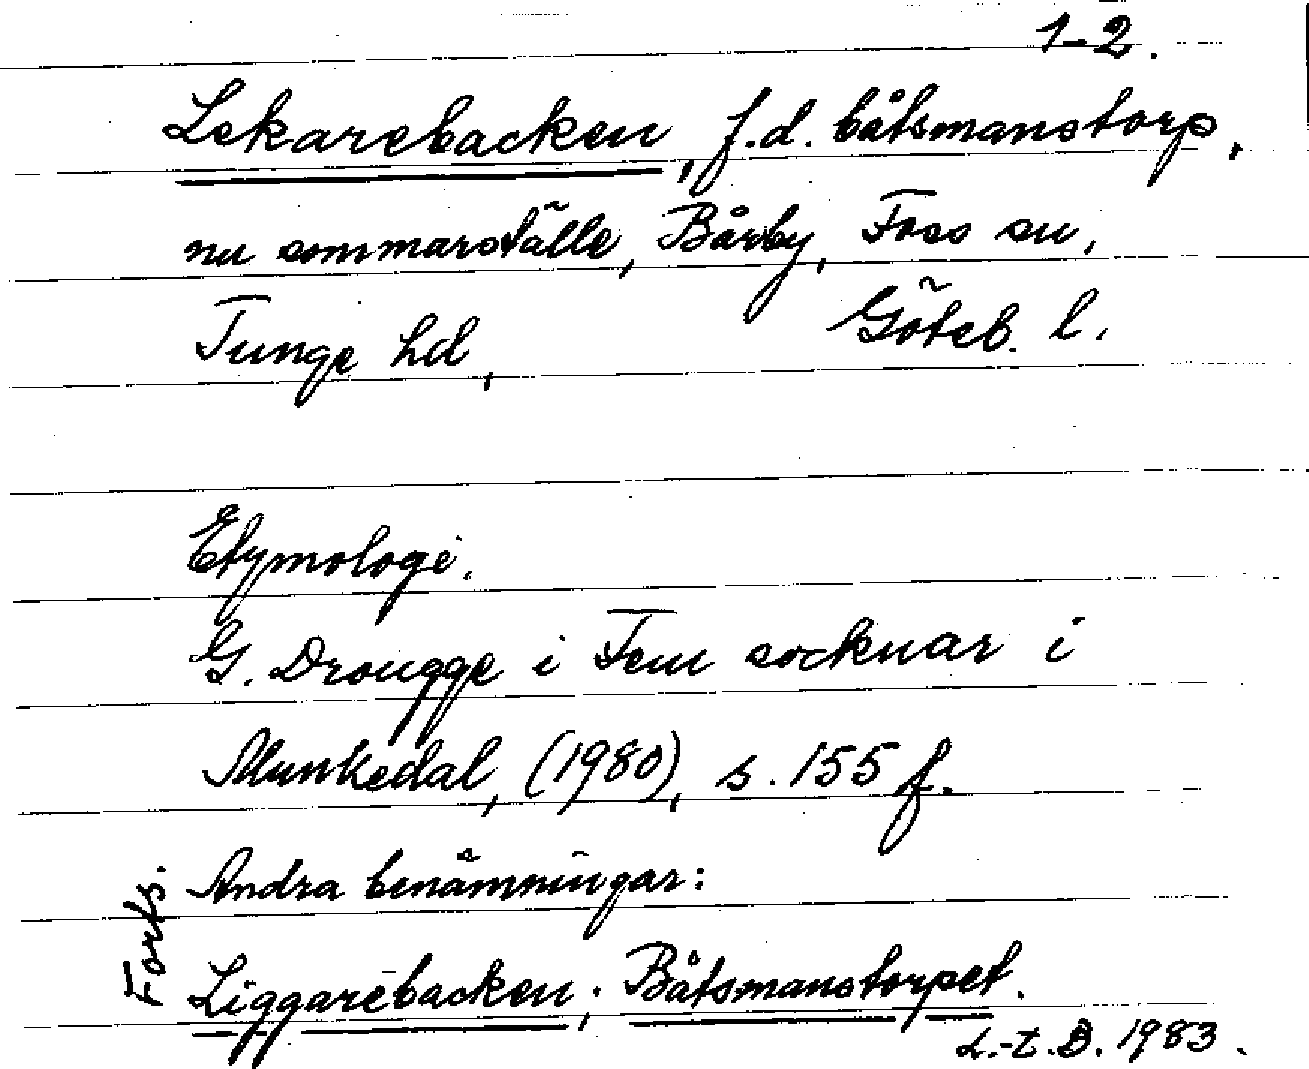 1-2.
Lekarebacken, f.d. båtsmanstorp,
nu sommarställe, Bärby, Foss sn,
Tunge hd, Göteb. l.
Etymologi.
G. Drougge i Fem socknar i
Munkedal, (1980), s. 155 f.
Andra benämningar:
Liggarebacken; Båtsmanstorpet.
Forts.
L.-t. B. 1983.